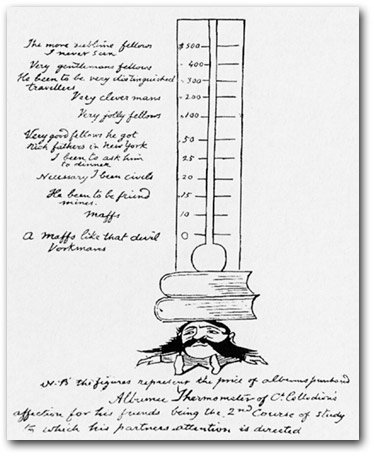 The more sublime fellows
I never seen
$500
Very gentlemans fellows
400
He been to be very distinguished
travellers
300
Very clever mans
200
Very jolly fellows
100
Very good fellows he got
rich fathers in New York
50
I been to ask him
to dinner
25
Necessary I been civils
20
He been to be friend
mines.
15
Maffs
10
A maffs like that devil
Vorkmans
0
N.B. the figures represent the price of albums purchased
Albumee Thermometer of Co Collodion's
affection for his friends being the 2nd Course of study
to which his partners attention is directed